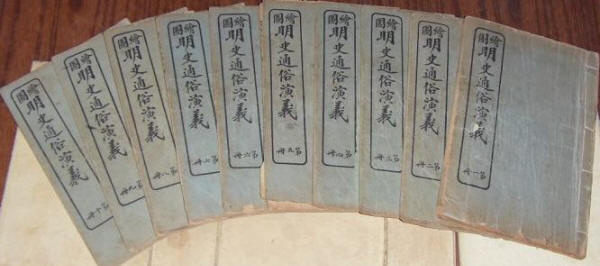 繪圖明史通俗演義 第一冊
繪圖明史通俗演義 第二冊
繪圖明史通俗演義 第三冊
繪圖明史通俗演義 第四冊
繪圖明史通俗演義 第五冊
繪圖明史通俗演義 第六冊
繪圖明史通俗演義 第七冊
繪圖明史通俗演義 第八冊
繪圖明史通俗演義 第九冊
繪圖明史通俗演義 第十冊